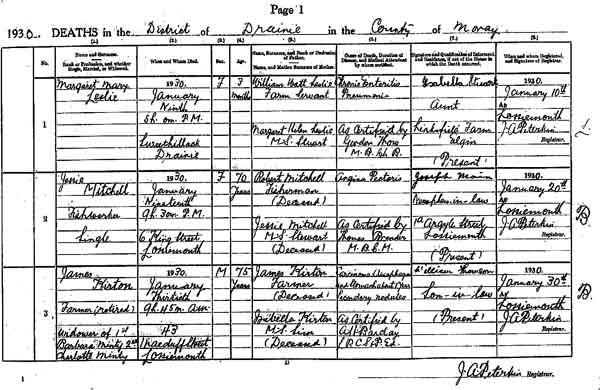 Page 1
1930. DEATHS in the District of Drainie in the County of Moray
(1.) (2.) (3.) (4.) (5.) (6.) (7.) (8.)
No. Name and Surname. When and Where Died. Sex. Age. Name, Surname, and Rank or Profession of Father. Cause of Death, Duration of Disease, and Medical Attendant by whom certified. Signature and Qualification of Informant, and Residence, if out of the House in which the Death occurred. When and where Registered, and Signature of Registrar.
Rank or Profession, and whether Single, Married, or Widowed. Name, and Maiden Surname of Mother.
1
Margaret Mary
Leslie
1930.
January
Ninth
5h. 0m. P.M.
Drainie
F
3
months
William Watt Leslie
Farm Servant
Margaret Helen Leslie
M.S. Stuart
Enteritis
Pneumonia
As Certified by
Gordon
M.B. Ch.B.
Isabella Stuart
Aunt
Linksfield Farm
Elgin
(Present)
1930.
January 10th
At
Lossiemouth
J.A. Peterkin
Registrar.
2
Jessie
Mitchell
Fishworker
Single
1930.
January
Nineteenth
9h. 30m. P.M.
6 King Street
Lossiemouth
F
70
Years
Robert Mitchell
Fisherman
(Deceased)
Jessie Mitchell
M.S. Stewart
(Deceased)
Angina Pectoris
As Certified by
Thomas Brander
M.B. C.M.
Joseph Main
Nephew-in-law
19 Argyle Street
Lossiemouth
(Present)
1930.
January 20th
At
Lossiemouth
J.A. Peterkin
Registrar.
3
James
Kirton
Farmer (retired)
Widower of 1st
Barbara Minty 2nd
Charlotte Minty
1930.
January
Thirtieth
9h. 45m. A.M.
43
Macduff Street
Lossiemouth
M
75
Years
James Kirton
Farmer
(Deceased)
Isabella Kirton
M.S. Sim
(Deceased)
Carcinoma
secondary nodules
As Certified by
Barclay
William Thomson
Son-in-law
(Present)
1930.
January 30th
At
Lossiemouth
J.A. Peterkin
Registrar.
1
J.A. Peterkin
Registrar.